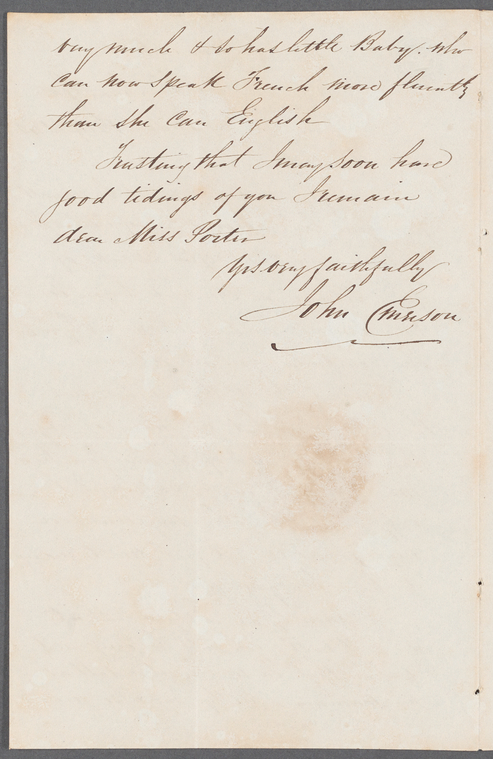 very much & so has little Baby. who
can now speak French more fluently
than she can English
Trusting that I may soon have
good tidings of you I remain
dear Miss Porter
Yrs very faithfully
John Emerson